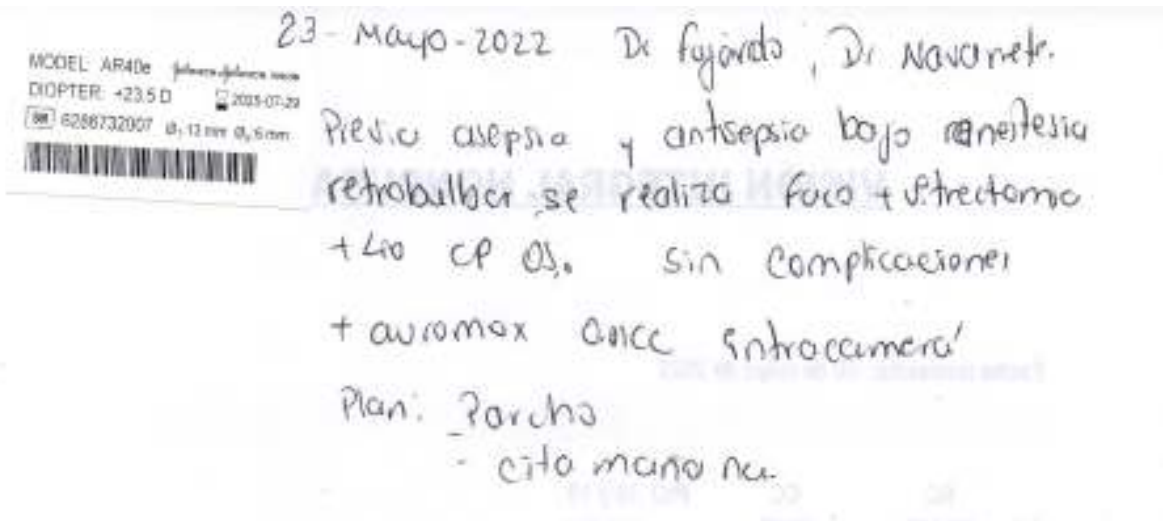 MODEL: AR40e Johnson & Johnson VISION
DIOPTER: +23.5 D 2025-07-29
SN 6286732007 Ø 13 mm Ø 6 mm
23 - Mayo - 2022 Dr Fajardo, Dr Navarrete.
Previa asepsia y antisepsia bajo anestesia
retrobulbar se realiza Faco + Vitrectomia
+ Lio CP OS. sin complicaciones
+ auromox 0.1cc intracameral
Plan: Parcho
- cita mañana